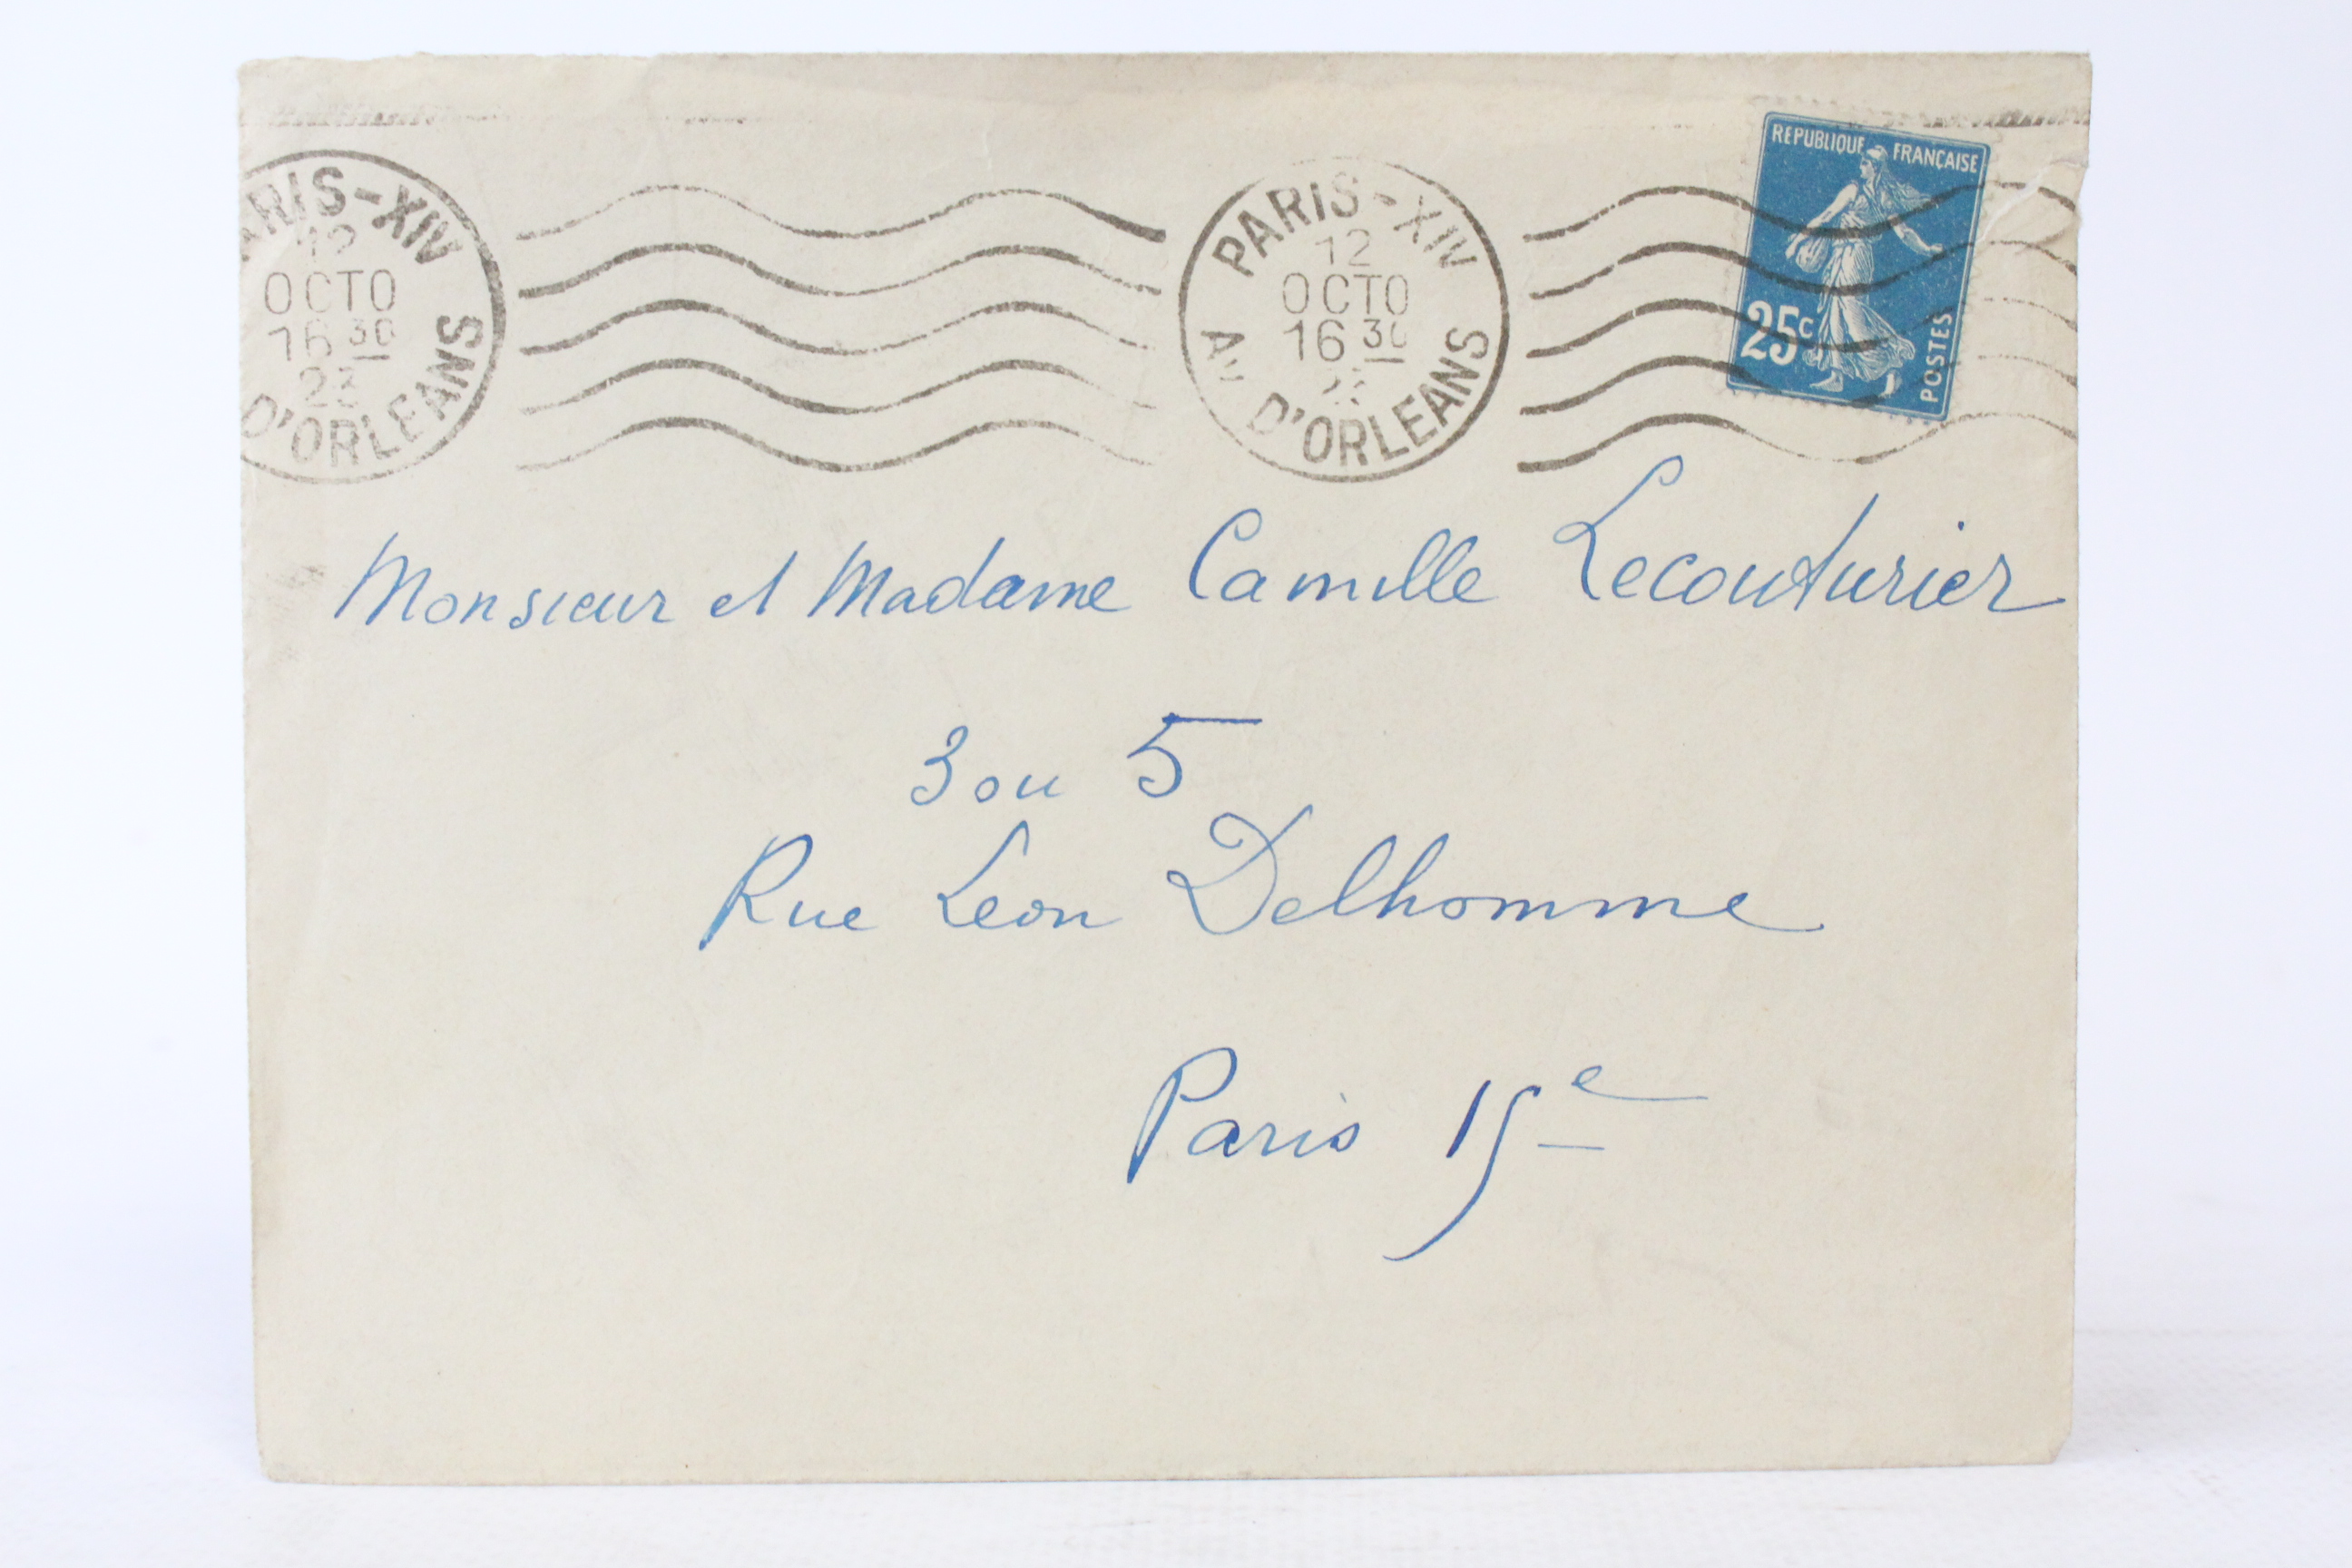 RIS-XIV
12
OCTO
16 30
23
D'ORLEANS
PARIS-XIV
12
OCTO
16 30
AV D'ORLEANS
REPUBLIQUE FRANÇAISE
25c
POSTES
Monsieur et Madame Camille Lecouturier
3 ou 5
Rue Leon Delhomme
Paris 15e